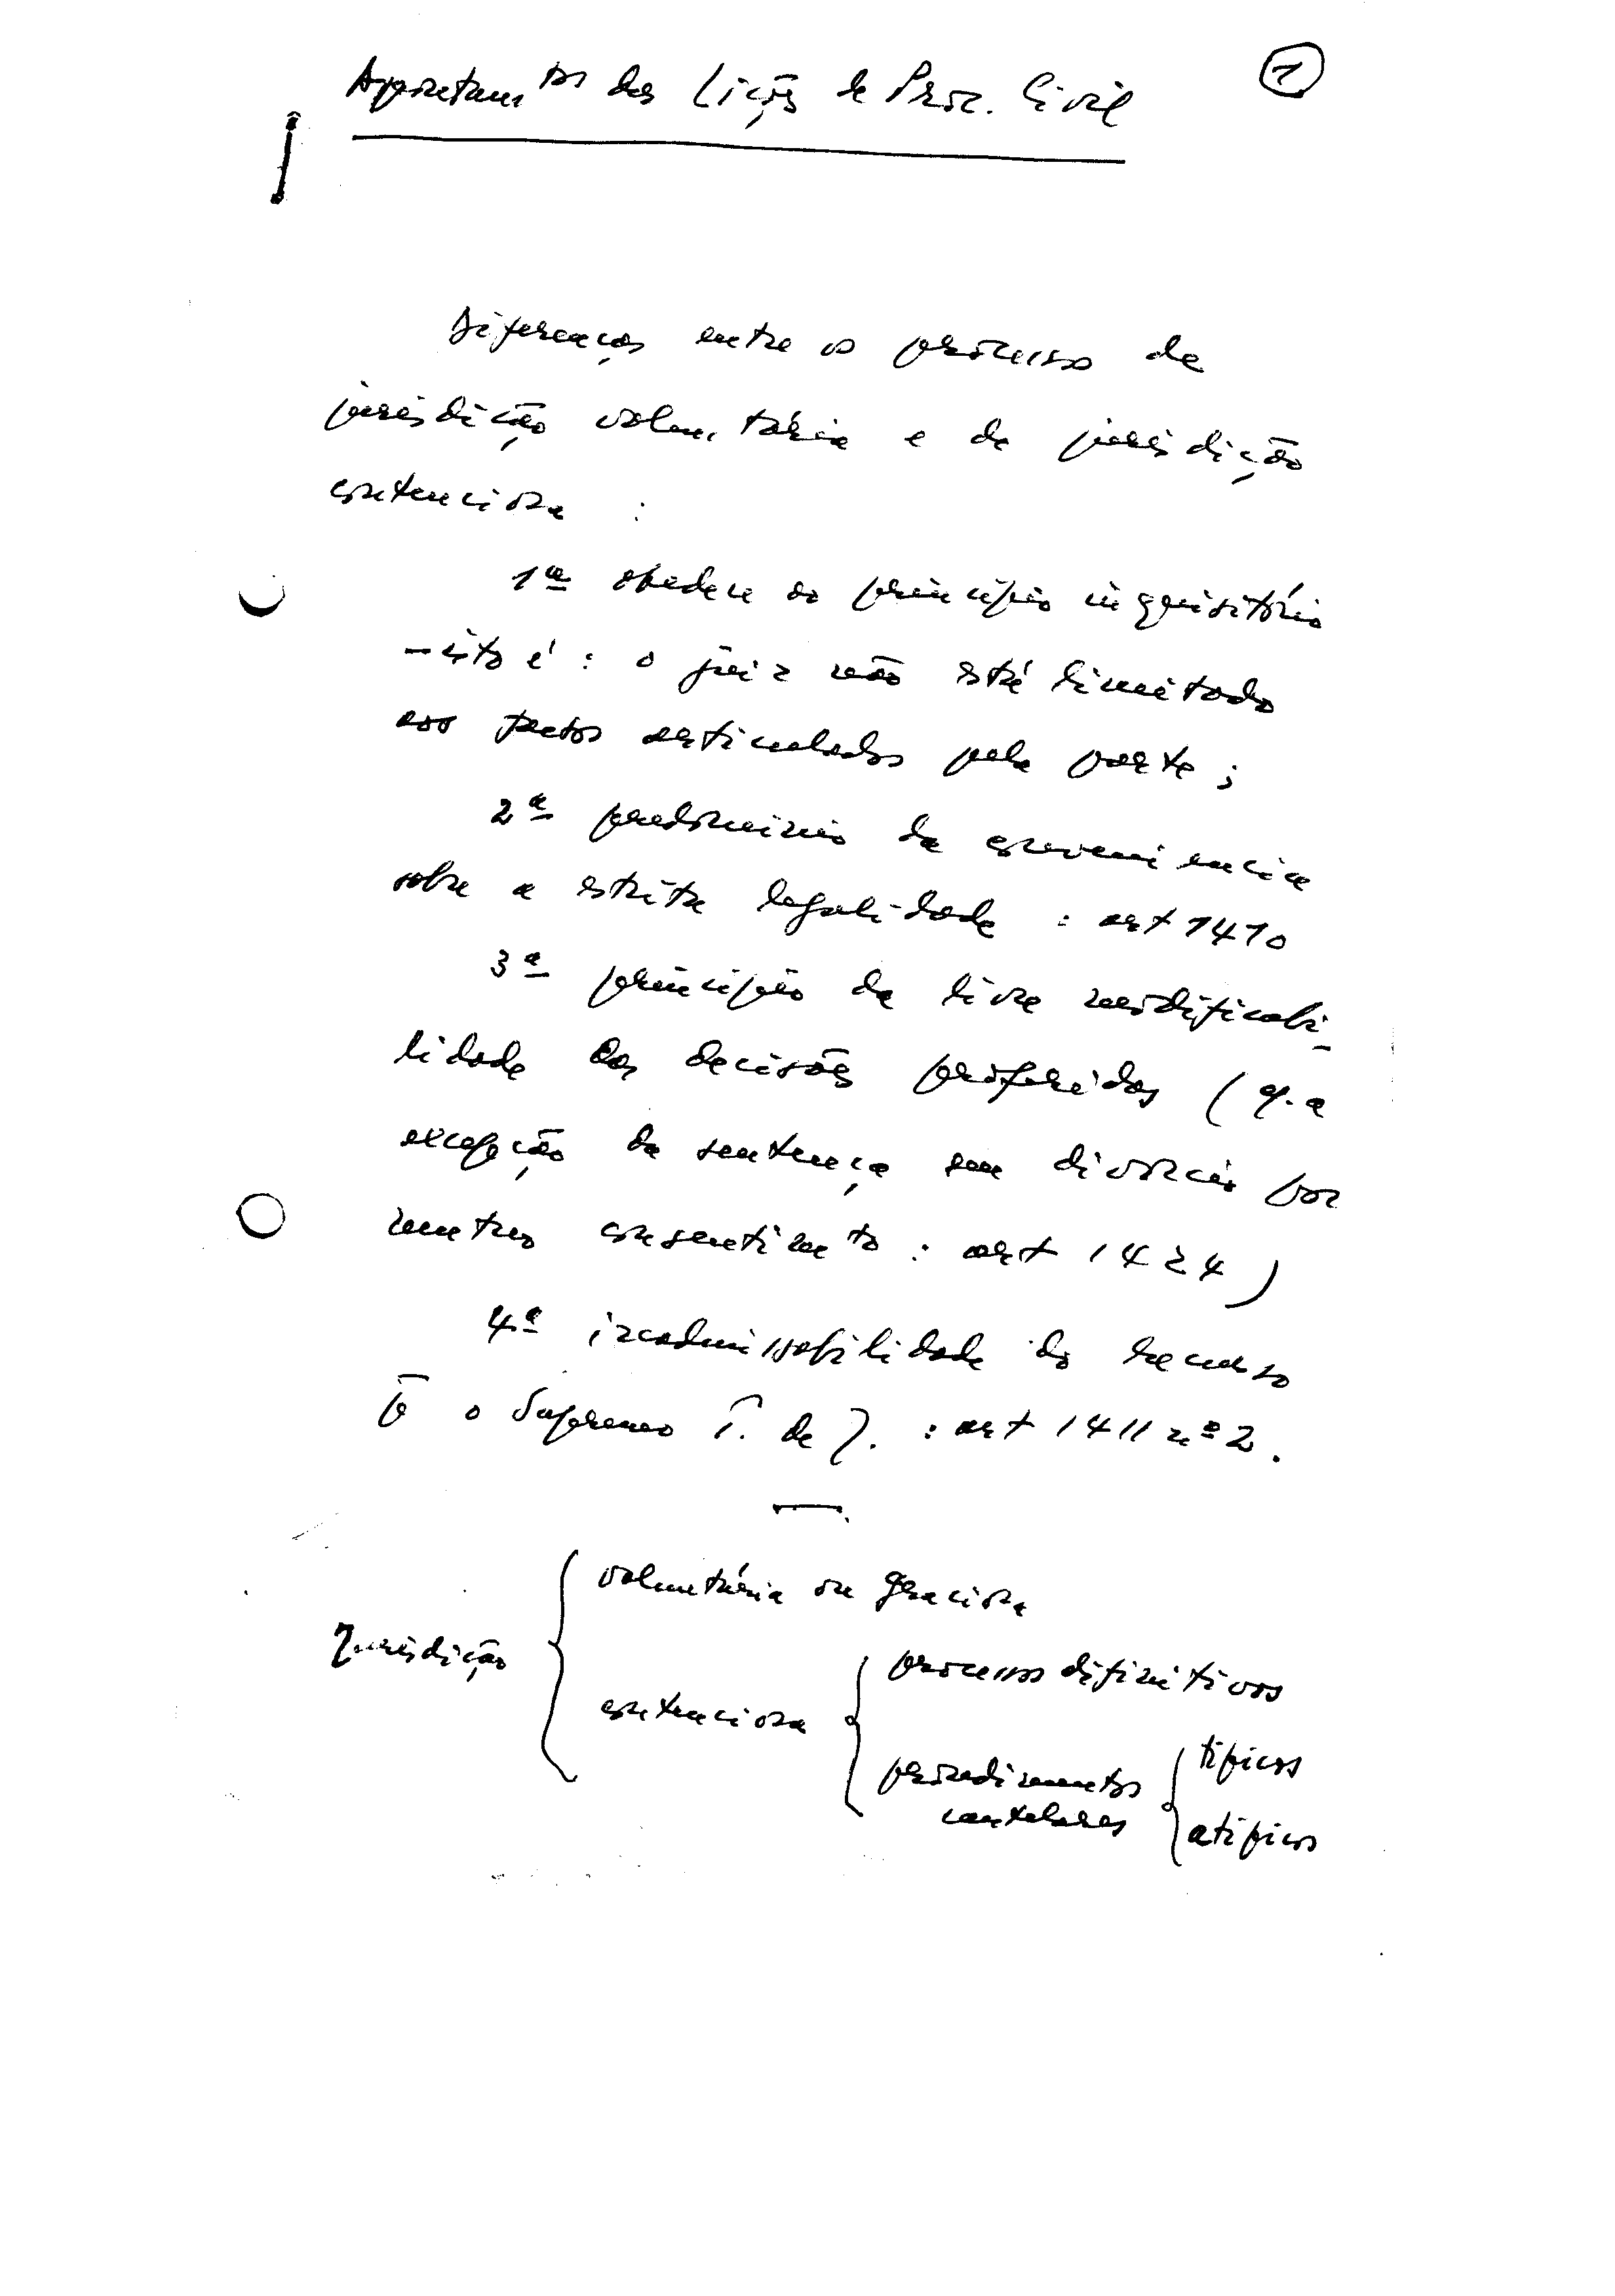 Apontamtos das Lições de Proc. Civil
1
Diferenças entre o processo de
jurisdição voluntária e de jurisdição
contenciosa :
1ª obedece ao princípio inquisitório
- isto é : o juiz não está limitado
aos factos articulados pela parte ;
2ª predomínio da conveniencia
sobre a estrita legalidade : art 1410
3ª princípio da livre modificabi-
lidade das decisões proferidas (
excepção da sentença em divorcio por
mutuo consentimto : art 1424 )
4ª inadmissobilidade do recurso
o Supremo T. de J. : art 1411 nº 2.
Jurisdição
voluntária ou graciosa
contenciosa
processos difinitivos
procedimentos
cautelares
tipicos
atipicos